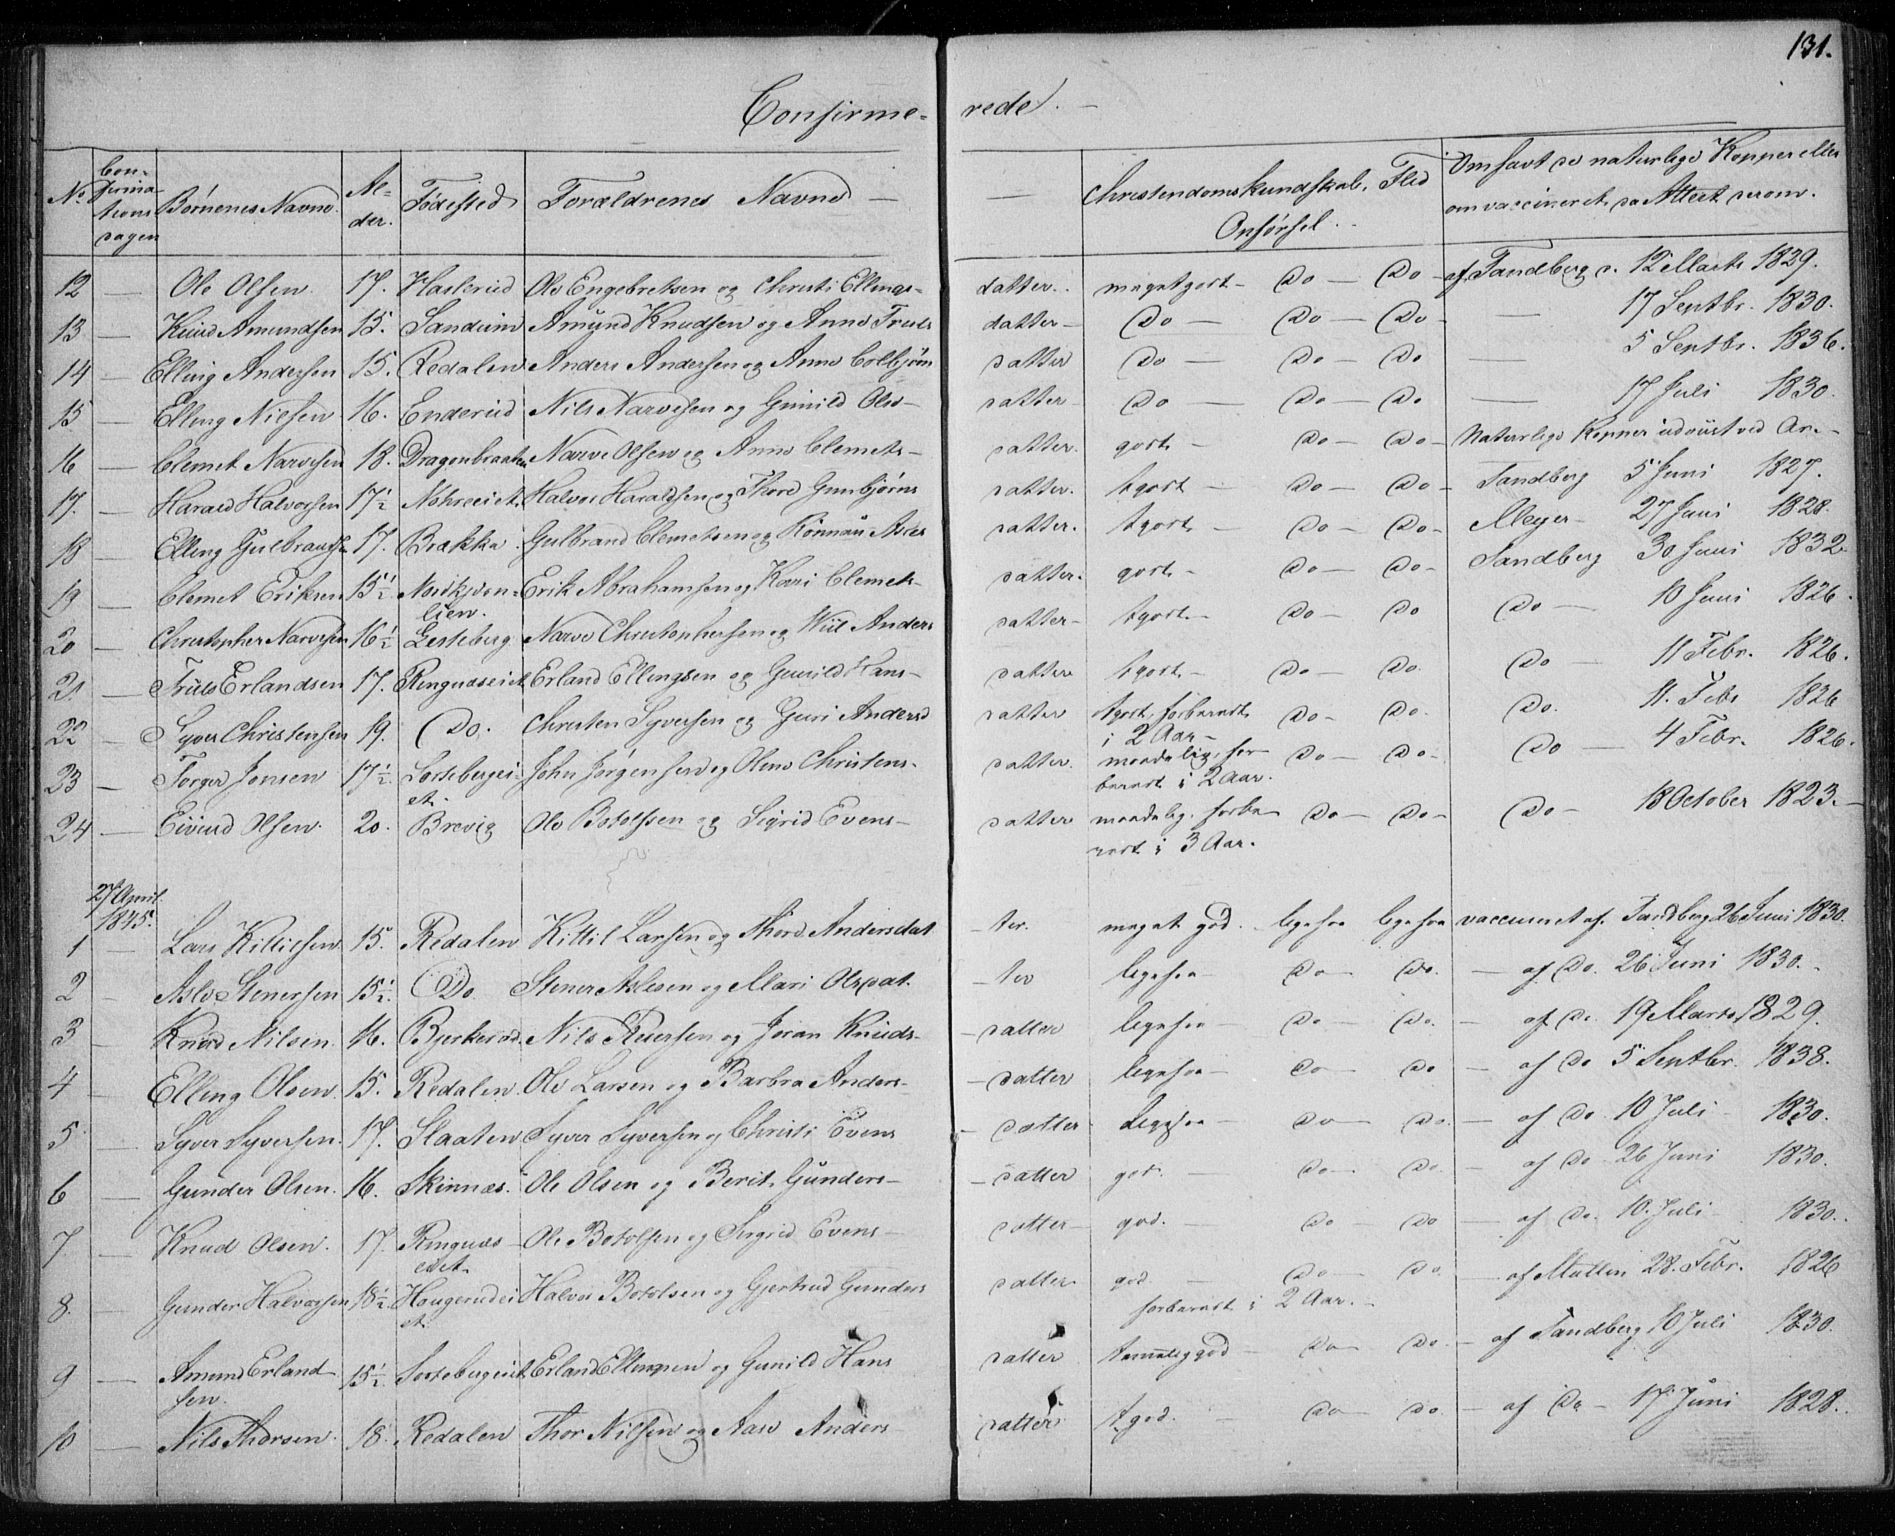 131.
Confirme- rede. -
No Con-firma-tions dagen Børnenes Navne. Al-der. Fødested Forældrenes Navne — — Christendomskundskab, Flid Opførsel. Om havt de naturlige Kopper eller om vaccineret, da Attest derom.
12 — Ole Olsen. 17. Haslerud Ole Engebretsen og Christi Ellings- datter. meget godt - Do - Do - af Sandberg d. 12 Marts 1829.
13 — Knud Amundsen 15. Sandum Amund Knudsen og Anne Truls datter - Do - Do - Do - — 17 Septbr. 1830.
14 — Elling Andersen 15. Redalen Anders Andersen og Anne Colbjörn datter Do - Do - Do — 5 Septbr. 1836.
15 — Elling Nielsen 16. Enderud Nils Narvesen og Gunild Ols- datter Do - Do - Do — 17 Juli 1830.
16 — Clemet Narvesen 18. Dragonbraaten Narve Olsen og Anne Clemets- datter. godt - Do - Do - Naturlige Kopper udviist ved Ar. -
17. — Harald Halvorsen 17½ Halvor Haraldsen og Thore Gunbjörns datter. tgodt - Do - Do - Sandberg 5 Juni 1827.
18 — Elling Gulbrandsen 17. Brakka Gulbrand Clemetsen og Rönnau Asles datter. tgodt - Do - Do - Meyer - 27 Juni 1828.
19 — Clemet Eriksen 15½ Erik Abrahamsen og Kari Clemets- datter. godt - Do - Do - Sandberg 30 Juni 1832
lien.
20 — Christopher Narvesen 16½ Lesteberg Narve Christophersen og Anders datter - tgodt - Do - Do Do - 10 Juni 1826.
21 — Truls Erlandsen 17. Ringnæseiet Erland Ellingsen og Gunild Hans- datter tgodt - Do - Do. Do - 11 Febr. 1826.
22 — Syver Christensen 19. Do. Christen Syversen og Guri Anders datter tgodt, forberedt i 2 Aar - Do - Do. Do. 11. Febr 1826
23 — Torger Jonsen 17½ Sortebergei-et. John Jørgensen og Olene Christens- datter. maadelig, for-beredt i 2 Aar. Do - Do - Do - 4 Febr. 1826.
24 — Eivind Olsen. 20. Brevig Ole Botolfsen og Sigrid Evens - datter maadelig. forbe-redt i 3 Aar. Do - Do - Do - 18 October 1823. -
27 April
1845.
1 — Lars Kittilsen 15. Redalen Kittil Larsen og Thore Andersdat -ter. meget god. ligesaa ligesaa vaccineret af. Sandberg 26 Juni 1830.
2 — Asle Stenersen 15½. Do. Stener Aslesen og Mari Olsdat. -ter ligesaa - Do - Do. - af Do. 26 Juni 1830.
3 — Knud Nilsen. 16. Bjerkerud Nils Reiersen og Joran Knuds- - datter ligesaa - Do - Do. - af Do. 19 Marts 1829.
4 — Elling Olsen. 15. Redalen. Ole Larsen og Barbra Anders- - datter ligesaa - Do - Do - af Do 5 Septbr. 1838.
5 — Syver Syversen. 17. Slaaten Syver Syversen og Christi Evens - datter Ligesaa - Do - Do. - af Do 10 Juli - 1830.
6 — Gunder Olsen. 16. Skinnes. Ole Olsen og Berit Gunders- - datter god. - Do - Do. - af Do 26 Juni 1830.
7 — Knud Olsen. 17. Ringnæs-eiet. Ole Botolfsen og Sigrid Evens - datter - god. - Do - Do - af Do. 10. Juli 1830.
8. — Gunder Halvorsen 18½. Haugerudei-et. Halvor Botolsen og Gjertrud Gunders datter god. - forberedt i 2 Aar. - Do - Do. - af 28. Febr. 1826
9 — Amund Erland-sen. 15½. Sortebergeiet Erland Ellingsen og Gunild Hans datter temmelig god - Do - Do. - af Sandberg 10 Juli 1830.
10 — Nils Thorsen. 18. Redalen Thor Nilsen og Aase Anders datter tgod. - Do - Do. - af Do - 17 Juni 1828.